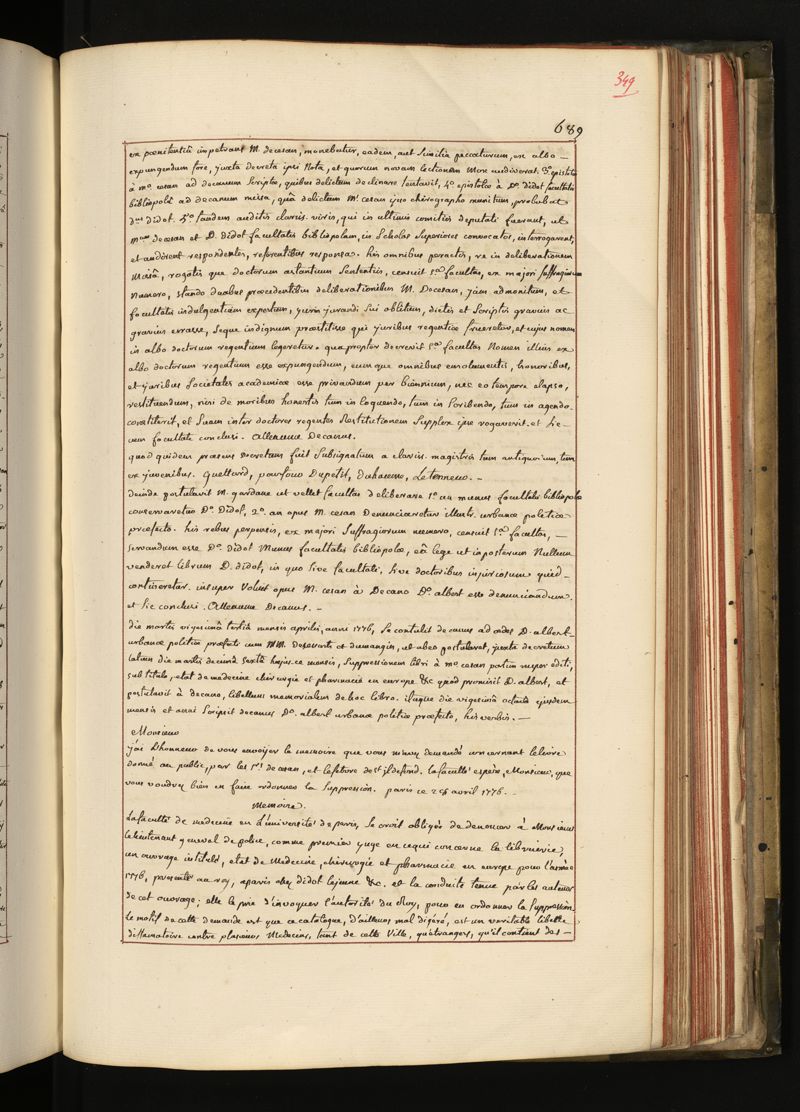 349
689
ex poenitentiâ impetrans M. decesan, monebatur, eadem, aut similia peccaturum, ex albo
expungendum fore, juxta decreta ipsi nota, et quorum novam lectionem mox audiverat. 3.° epistolis
à m.° cesan ad decanum scriptis, quibus delictum declinare tentavit, 4.° epistolâ à D.° didot facultatis
bibliopolâ ad decanum missa, quâ delictum M.i cesan ipso chirographo munitum, probabat
d.nus didot. 5.° tandem auditis clariss. viris, qui in ultimis comitiis deputati fuerant, ut
M.rum decesan et D. didot facultatis bibliopolam, in scholas superiores convocatos, interrogarent,
et audirent respondentes, referentibus responsa. his omnibus peractis, re in deliberationem
missâ, rogatis que doctorum astantium sententiis, censuit s.ma facultas, ex majori suffragiorum
numero, stando duabus praecedentibus deliberationibus M. Decesan, jam admonitum, et
facultatis indulgentiam expertum, juris jurandi sui oblitum, dictis et scriptis gravius ac
gravius errasse, seque indignum praestitisse qui juribus regentiae frueretur, et cujus nomen
in albo doctorum regentium legeretur. quapropter decrevit s.ma facultas nomen illius ex
albo doctorum regentium esse expungendum, eumque omnibus emolumentis, honoribus,
et juribus societatis academicae esse privandum per biennium, nec eo tempore elapso,
restituendum, nisi de moribus honestis tum in loquendo, tum in scribendo, tum in agendo
constiterit, et suam inter doctores regentes restitutionem supplex ipse rogaverit. et sic
cum facultate conclusi. Alleaume Decanus.
quod quidem praesens decretum fuit subsignatum a clariss. magistris tum antiquorum, tum
ex juvenibus. Guettard, pourfour Dupetit, Duhaume, Le tenneur.
deinde postulavit M. gardane ut vellet facultas deliberare 1.° an munus facultatis bibliopolae
conservaretur D.° Didot, 2.° an opus M. cesan denunciaretur illustr. urbanae politiae
praefecto. his rebus perpensis, ex majori suffragiorum numero, censuit s.ma facultas,
servandum esse D.° didot munus facultatis bibliopolae, eâ lege ut in posterum nullum
venderet librum D. didot, in quo sive facultati, sive doctoribus injuriosum quid
contineretur. insuper voluit opus M. cesan à Decano D.° albert esse denunciandum.
et sic conclusi. Alleaume Decanus.
die martis vigesimâ tertiâ mensis aprilis, anni 1776, se contulit decanus ad aedes D. albert
urbanae politiae praefecti cum MM. Desessartz et dumangin, ut ab eo postularet, juxta decretum
latum die martis decimâ sextâ hujusce mensis, suppressionem libri à m.° cesan partim nuper editi,
sub titulo, etat de medecine chirurgie et pharmacie en europe &c quod promisit D. albert, et
postulavit à decano, libellum memorialem de hoc libro. itaque die vigesimâ octavâ ejusdem
mensis et anni scripsit decanus D.° albert urbanae politiae praefecto, his verbis.
Monsieur
j'ai L'honneur de vous envoyer le memoire que vous m'avez demandé concernant le livre
donné au public, par les s.rs de cesan, et lefebvre de s.t ildefond. la faculté espère, Monsieur, que
vous voudrez bien en faire ordonner la suppression. paris ce 28 avril 1776.
Memoire.
La faculté de medecine en L'université de paris, se croit obligée de denoncer à Monsieur
le lieutenant general de police, comme premier juge en ce qui concerne la librairie,
un ouvrage intitulé, etat de Medecine, chirurgie et pharmacie en europe pour l'année
1776, presenté au roy, à paris chez didot le jeune &c. et la conduite tenue par les auteurs
de cet ouvrage; elle le prie d'invoquer l'autorité du Roy, pour en ordonner la suppression
le motif de cette demande est que ce catalogue, d'ailleurs mal digéré, est un veritable libelle
diffamatoire contre plusieurs Medecins, tant de cette Ville, qu'etrangers, qu'il contient des